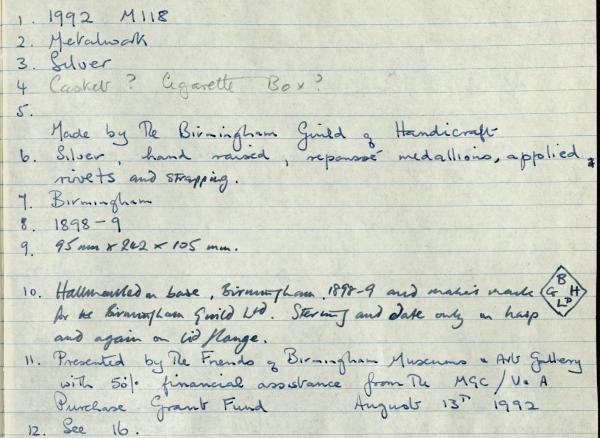 1. 1992 M118
2. Metalwork
3. Silver
4 Casket? Cigarette Box?
5.
Made by The Birmingham Guild of Handicraft
6. Silver, hand raised, repoussé medallions, applied
rivets and strapping.
7. Birmingham
8. 1898-9
9. 95mm x 242 x 105 mm.
10. Hallmarked on base, Birmingham, 1898-9 and maker's mark
for the Birmingham Guild Ltd. Sterling and date only on hasp
and again on lid flange.
B
G H
LD
11. Presented by The Friends of Birmingham Museums & Art Gallery
with 50% financial assistance from The MGC/V&A
Purchase Grant Fund August 13th 1992
12. See 16.